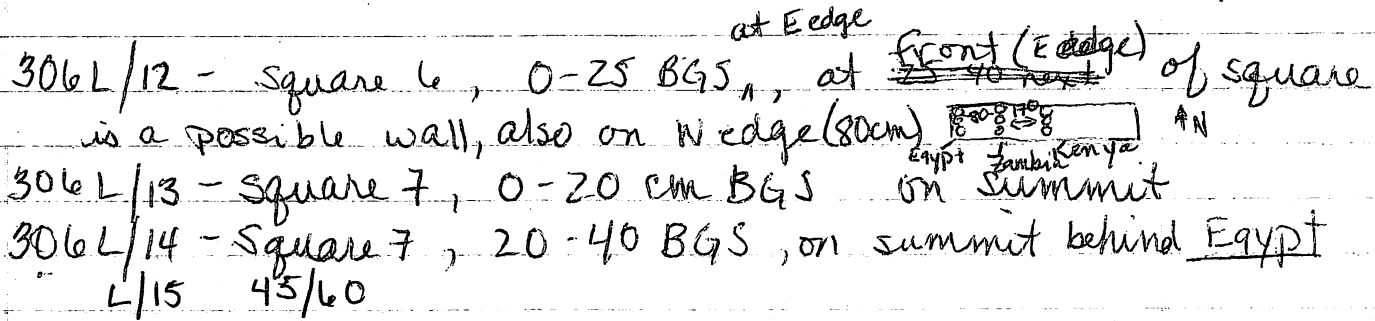 at E edge
306L/12 - Square 6, 0-25 BGS ^, at front (E edge) of square
is a possible wall, also on N edge (80cm) 80 170 ↑N
Egypt Zambia Kenya
306L/13 - Square 7, 0-20 cm BGS on summit
306L/14 - Square 7, 20-40 BGS, on summit behind Egypt
L/15 45/60